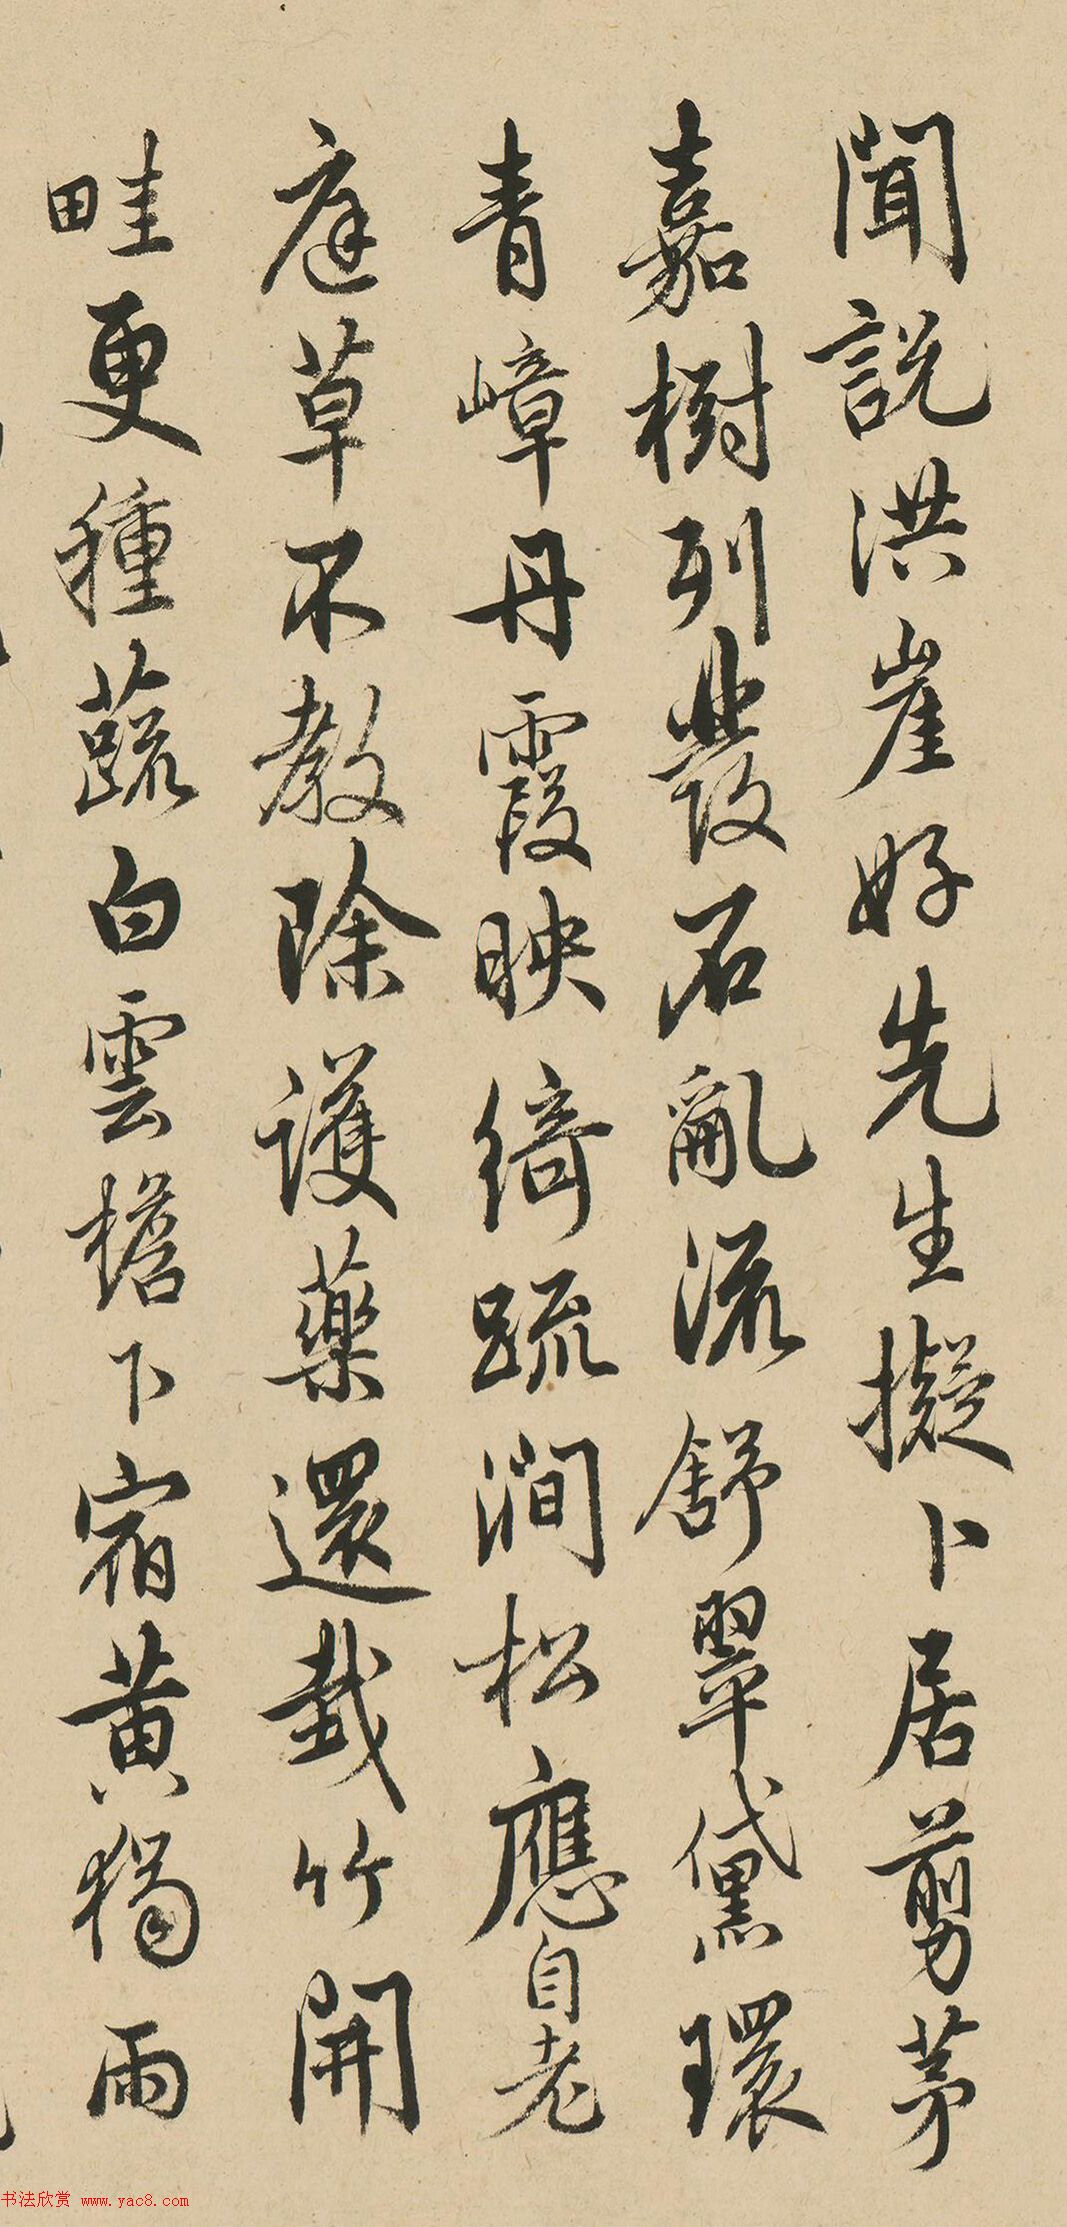 聞說洪崖好先生擬卜居剪茅
嘉樹列叢石亂流舒翠黛環
青嶂丹霞映綺疏澗松應自老
庭草不教除護藥還栽竹開
畦更種蔬白雲檐下宿黃獨雨
书法欣赏 www.yac8.com